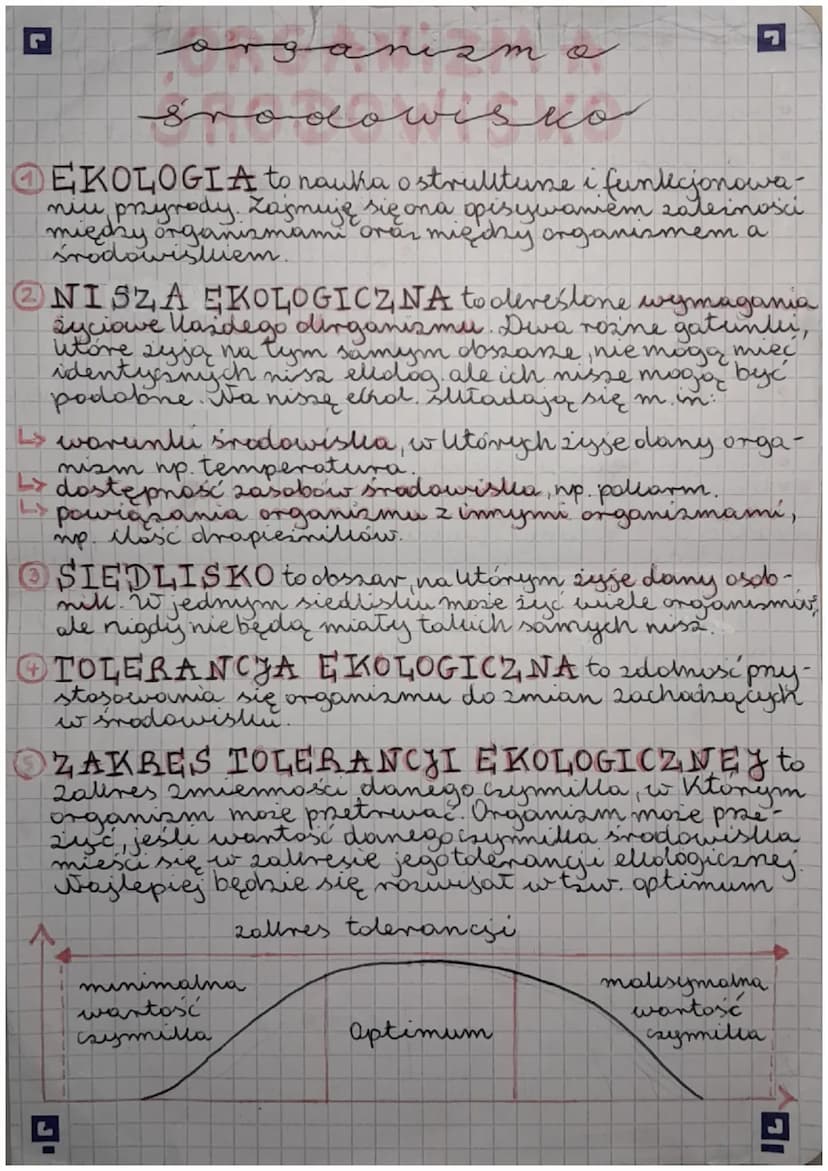 organizm a
środowisko
① EKOLOGIA to nauka o strukturze i funkcjonowa-
niu przyrody. Zajmuję się ona opisywaniem zależności
między organizmami oraz między organizmem a
środowiskiem.
② NISZA EKOLOGICZNA to określone wymagania
życiowe każdego organizmu. Dwa rożne gatunki,
które żyją na tym samym obszarze, nie mogą mieć
identycznych nisz ekolog. ale ich nisze mogą być
podobne. Na niszę ekol. składają się m.in:
↳ warunki środowiska, w których żyje dany orga-
nizm np. temperatura.
↳ dostępność zasobów środowiska, np. pokarm.
↳ powiązania organizmu z innymi organizmami,
np. ilość drapieżników.
③ SIEDLISKO to obszar, na którym żyje dany osob-
nik. W jednym siedlisku może żyć wiele organizmów,
ale nigdy nie będą miały takich samych nisz.
④ TOLERANCJA EKOLOGICZNA to zdolność przy-
stosowania się organizmu do zmian zachodzących
w środowisku.
⑤ ZAKRES TOLERANCJI EKOLOGICZNEJ to
zakres zmienności danego czynnika, w którym
organizm może przetrwać. Organizm może prze-
żyć, jeśli wartość danego czynnika środowiska
mieści się w zakresie jego tolerancji ekologicznej.
Najlepiej będzie się rozwijał w tzw. optimum
zakres tolerancji
minimalna
wartość
czynnika
Optimum
maksymalna
wartość
czynnika